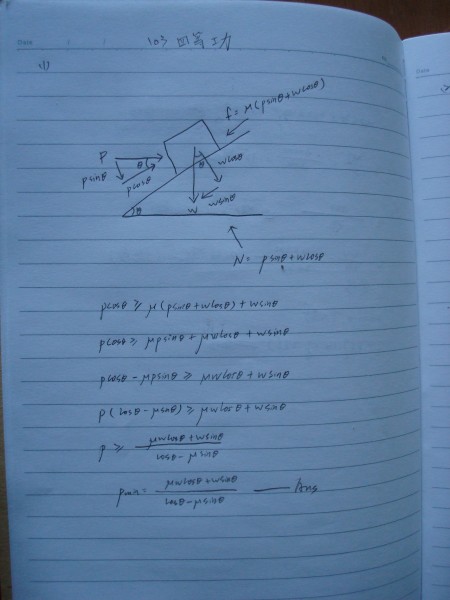 Date
103 四等 工力
(1)
f = μ(psinθ+wcosθ)
P
θ
psinθ
pcosθ
θ
wcosθ
wsinθ
θ
w
N = psinθ+wcosθ
pcosθ ≥ μ(psinθ+wcosθ)+wsinθ
pcosθ ≥ μpsinθ+μwcosθ+wsinθ
pcosθ-μpsinθ ≥ μwcosθ+wsinθ
p(cosθ-μsinθ) ≥ μwcosθ+wsinθ
p ≥ (μwcosθ+wsinθ)/(cosθ-μsinθ)
pmin = (μwcosθ+wsinθ)/(cosθ-μsinθ) — Ans
Date